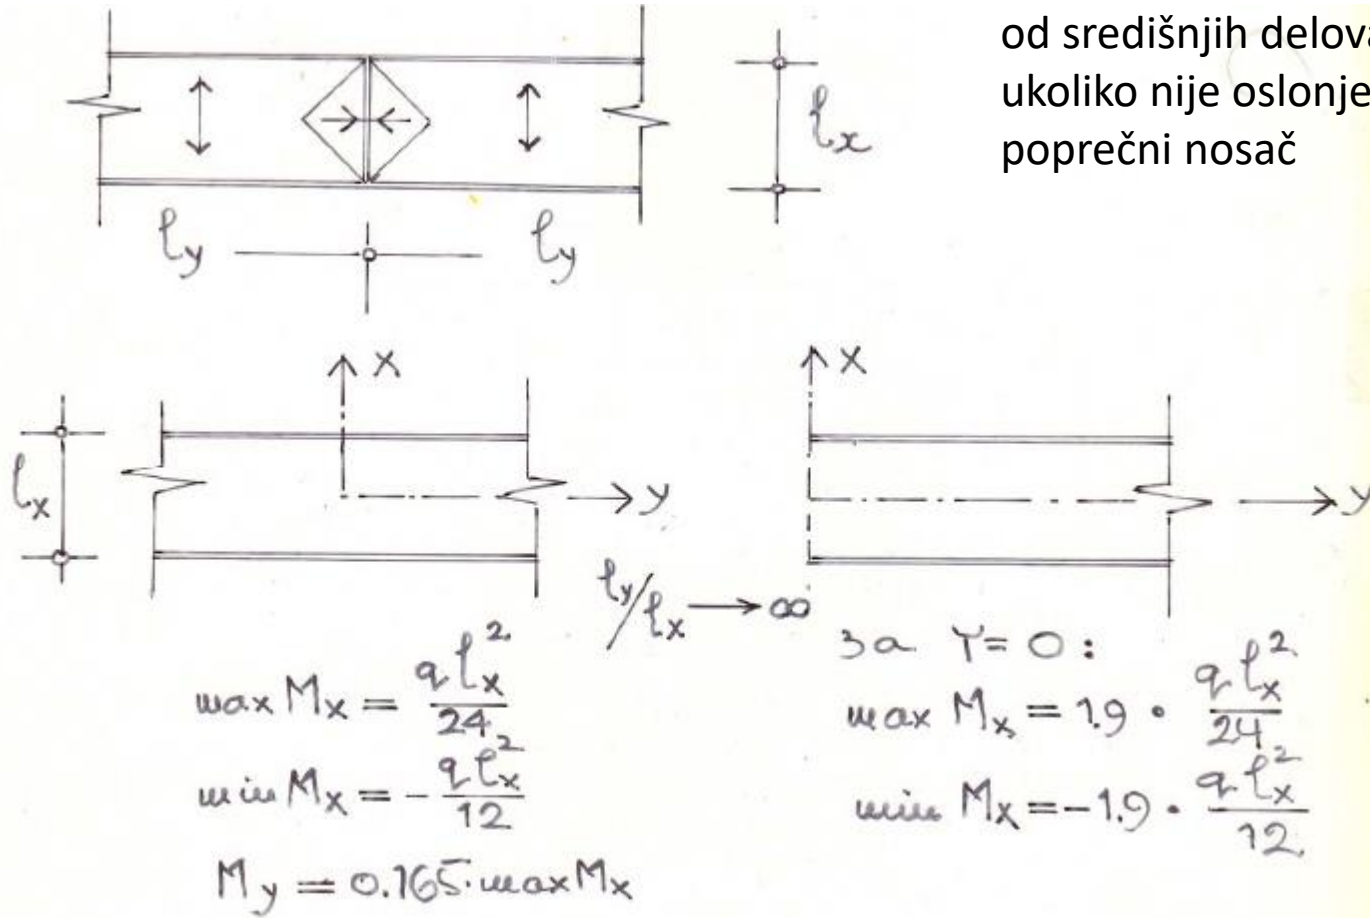 od središnjih delova
ukoliko nije oslonje
poprečni nosač
ℓx
ℓy ℓy
X
y
ℓx
X
y
ℓy/ℓx → ∞
max Mx = qℓx²/24
min Mx = -qℓx²/12
My = 0.165·max Mx
За Y=0:
max Mx = 1.9 · qℓx²/24
min Mx = -1.9 · qℓx²/12